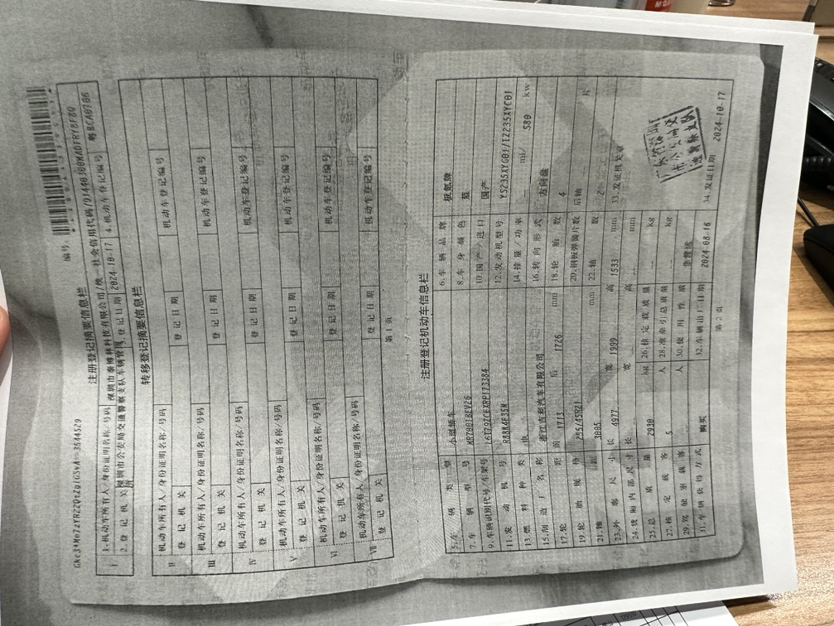 编号:
注册登记摘要信息栏
I
1.机动车所有人/身份证明名称/号码
2.登记机关
登记日期 2024-10-17
4.机动车登记编号
粤BCA0786
转移登记摘要信息栏
机动车所有人/身份证明名称/号码
II
登记机关
登记日期
机动车登记编号
机动车所有人/身份证明名称/号码
III
登记机关
登记日期
机动车登记编号
机动车所有人/身份证明名称/号码
IV
登记机关
登记日期
机动车登记编号
机动车所有人/身份证明名称/号码
V
登记机关
登记日期
机动车登记编号
机动车所有人/身份证明名称/号码
VI
登记机关
登记日期
机动车登记编号
机动车所有人/身份证明名称/号码
VII
登记机关
登记日期
机动车登记编号
第1页
注册登记机动车信息栏
5.车辆类型 小型轿车
6.车辆品牌 极氪牌
7.车辆型号
8.车身颜色 蓝
9.车辆识别代号/车架号
10.国产/进口 国产
11.发动机号
12.发动机型号
13.燃料种类 电
14.排量/功率 ml/ 580 kw
15.制造厂名称 浙江吉利汽车有限公司
16.转向形式 方向盘
17.轮距 前 1713 后 1726 mm
18.轮胎数 4
19.轮胎规格
20.钢板弹簧片数 后轴 片
21.轴距 3005 mm
22.轴数 2
23.外廓尺寸 长 4977 宽 1999 高 1533 mm
33.发证机关章
24.货厢内部尺寸 长 宽 高 mm
25.总质量 2930 kg
26.核定载质量 kg
27.核定载客 5 人
28.准牵引总质量 kg
29.驾驶室载客 人
30.使用性质
31.车辆获得方式 购买
32.车辆出厂日期 2024-08-16
34.发证日期 2024-10-17
第2页